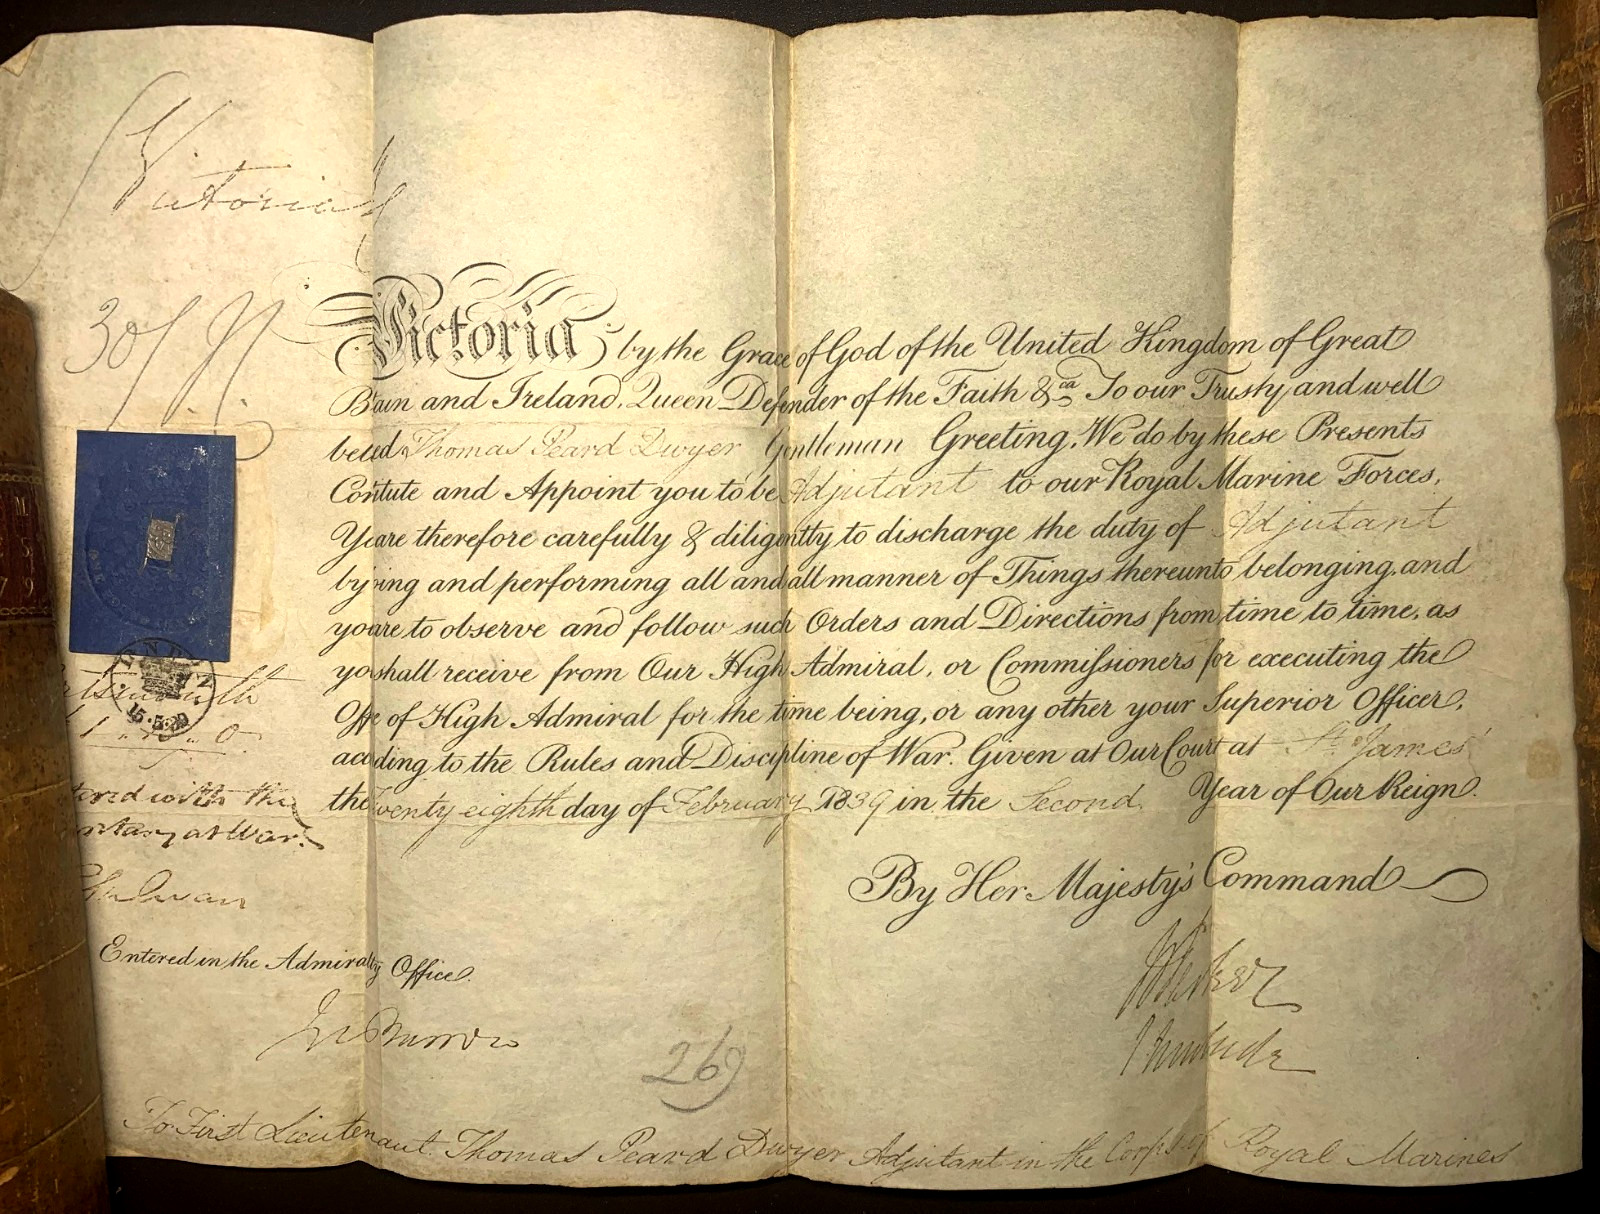 Victoria R
Victoria by the Grace of God of the United Kingdom of Great
Bain and Ireland, Queen Defender of the Faith &ca To our Trusty and well
beed Thomas Peard Dwyer Gentleman Greeting, We do by these Presents
Contute and Appoint you to be Adjutant to our Royal Marine Forces.
You are therefore carefully & diligently to discharge the duty of Adjutant
by ing and performing all and all manner of Things thereunto belonging, and
you are to observe and follow such Orders and Directions from time to time, as
yo shall receive from Our High Admiral, or Commissioners for executing the
Offe of High Admiral for the time being, or any other your Superior Officer,
acding to the Rules and Discipline of War. Given at Our Court at St. James'
the Twenty eighth day of February 1839 in the Second Year of Our Reign.
By Her Majesty's Command
tered with the
etary at War.
Entered in the Admiralty Office.
Jn Barrow
269
To First Lieutenant Thomas Peard Dwyer Adjutant in the Corps of Royal Marines